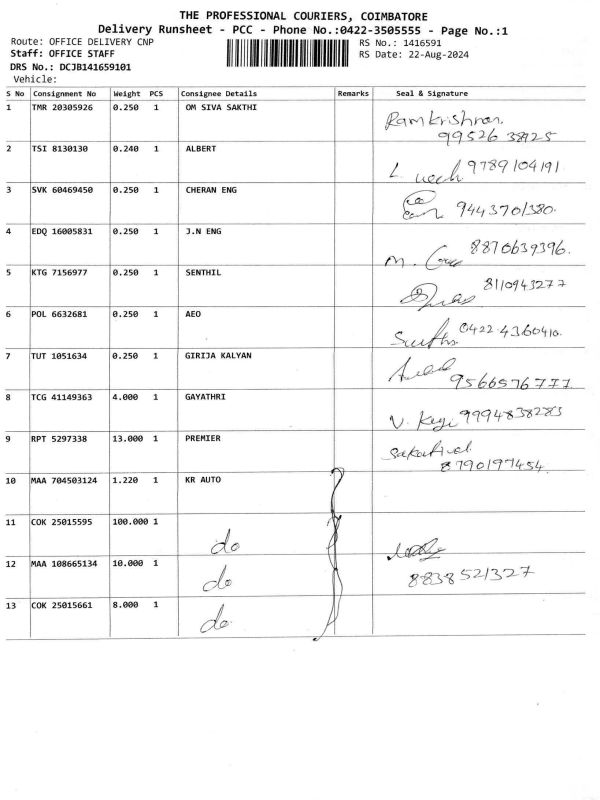 THE PROFESSIONAL COURIERS, COIMBATORE
Delivery Runsheet - PCC - Phone No.:0422-3505555 - Page No.:1
Route: OFFICE DELIVERY CNP RS No.: 1416591
Staff: OFFICE STAFF RS Date: 22-Aug-2024
DRS No.: DCJB141659101
Vehicle:
S No Consignment No Weight PCS Consignee Details Remarks Seal & Signature
1 TMR 20305926 0.250 1 OM SIVA SAKTHI
Ramkrishnan
99526 38925
2 TSI 8130130 0.240 1 ALBERT
L. 9789104191
3 SVK 60469450 0.250 1 CHERAN ENG
9443701380.
4 EDQ 16005831 0.250 1 J.N ENG
M. 8870639396.
5 KTG 7156977 0.250 1 SENTHIL
8110943277
6 POL 6632681 0.250 1 AEO
0422-4360410.
7 TUT 1051634 0.250 1 GIRIJA KALYAN
9566576777
8 TCG 41149363 4.000 1 GAYATHRI
V. 9994838283
9 RPT 5297338 13.000 1 PREMIER
8790197454
10 MAA 704503124 1.220 1 KR AUTO
11 COK 25015595 100.000 1
do
12 MAA 108665134 10.000 1
do 8838521327
13 COK 25015661 8.000 1
do